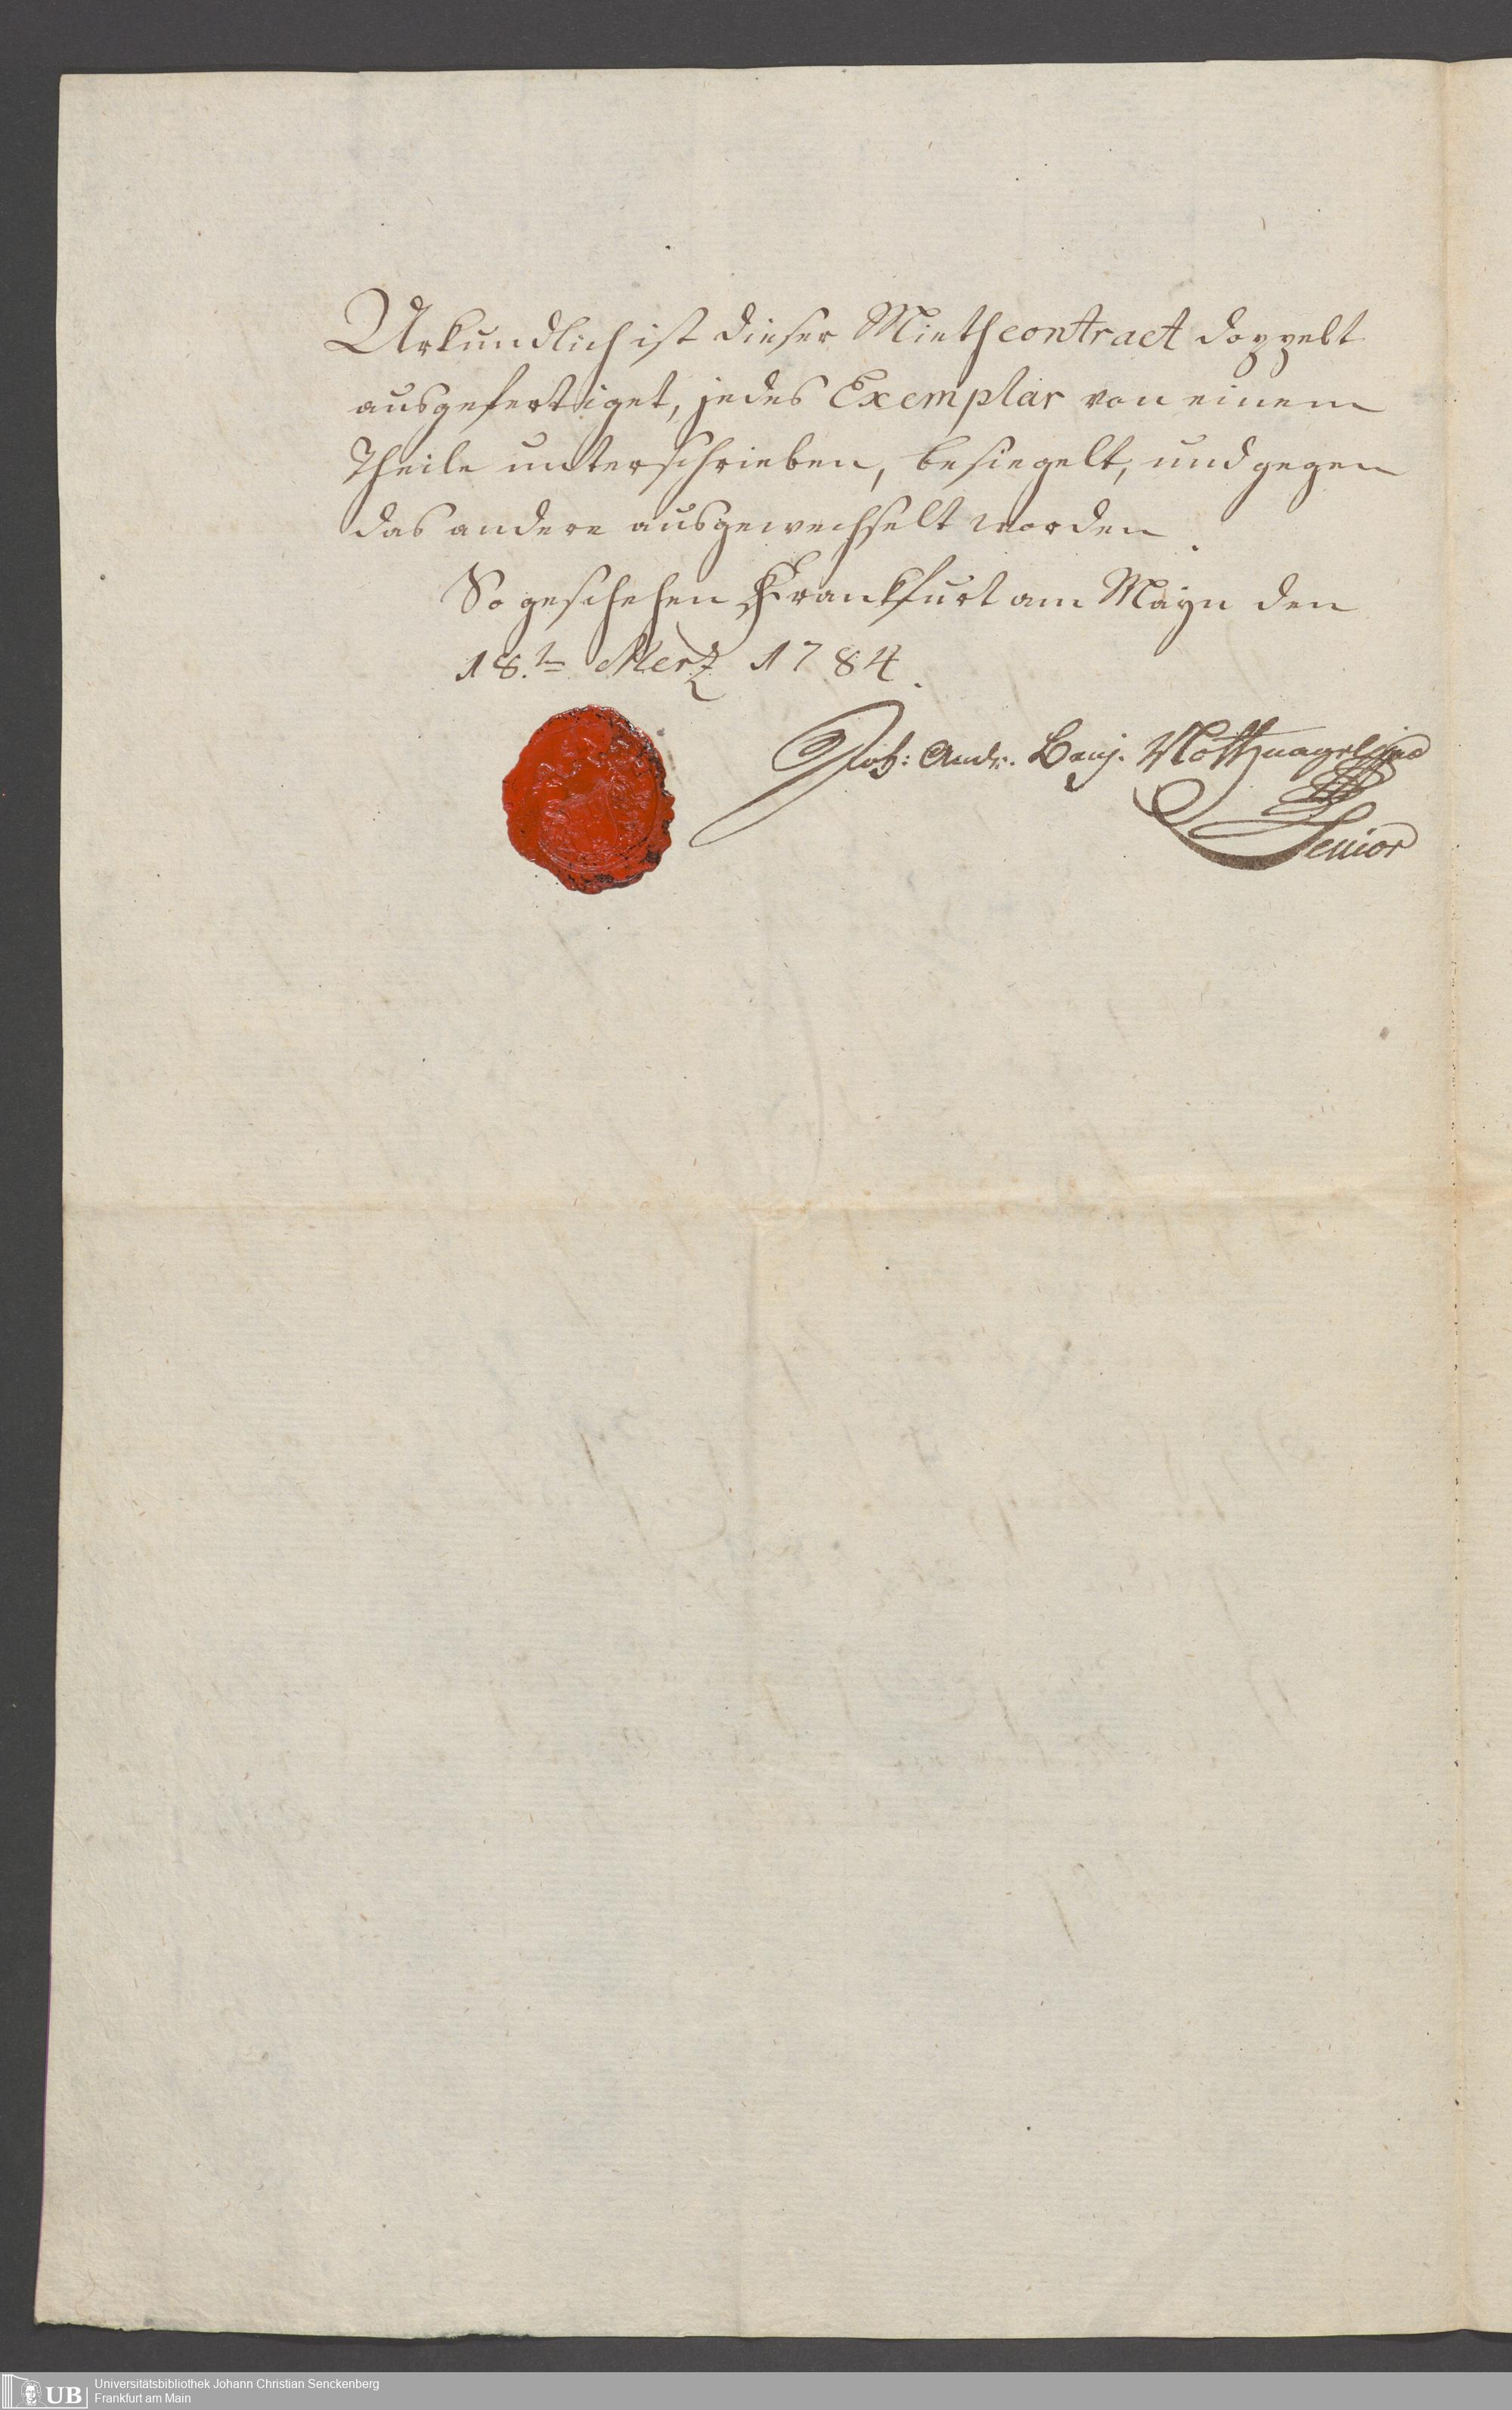 Urkundlich ist dieser Miethcontract doppelt
ausgefertiget, jedes Exemplar von einem
Theile unterschrieben, besiegelt, und gegen
das andere ausgewechselt worden.
So geschehen Frankfurt am Mayn den
18.ten Merz 1784.
Joh: Andr. Benj. Nothnagel
Senior
UB
Universitätsbibliothek Johann Christian Senckenberg
Frankfurt am Main